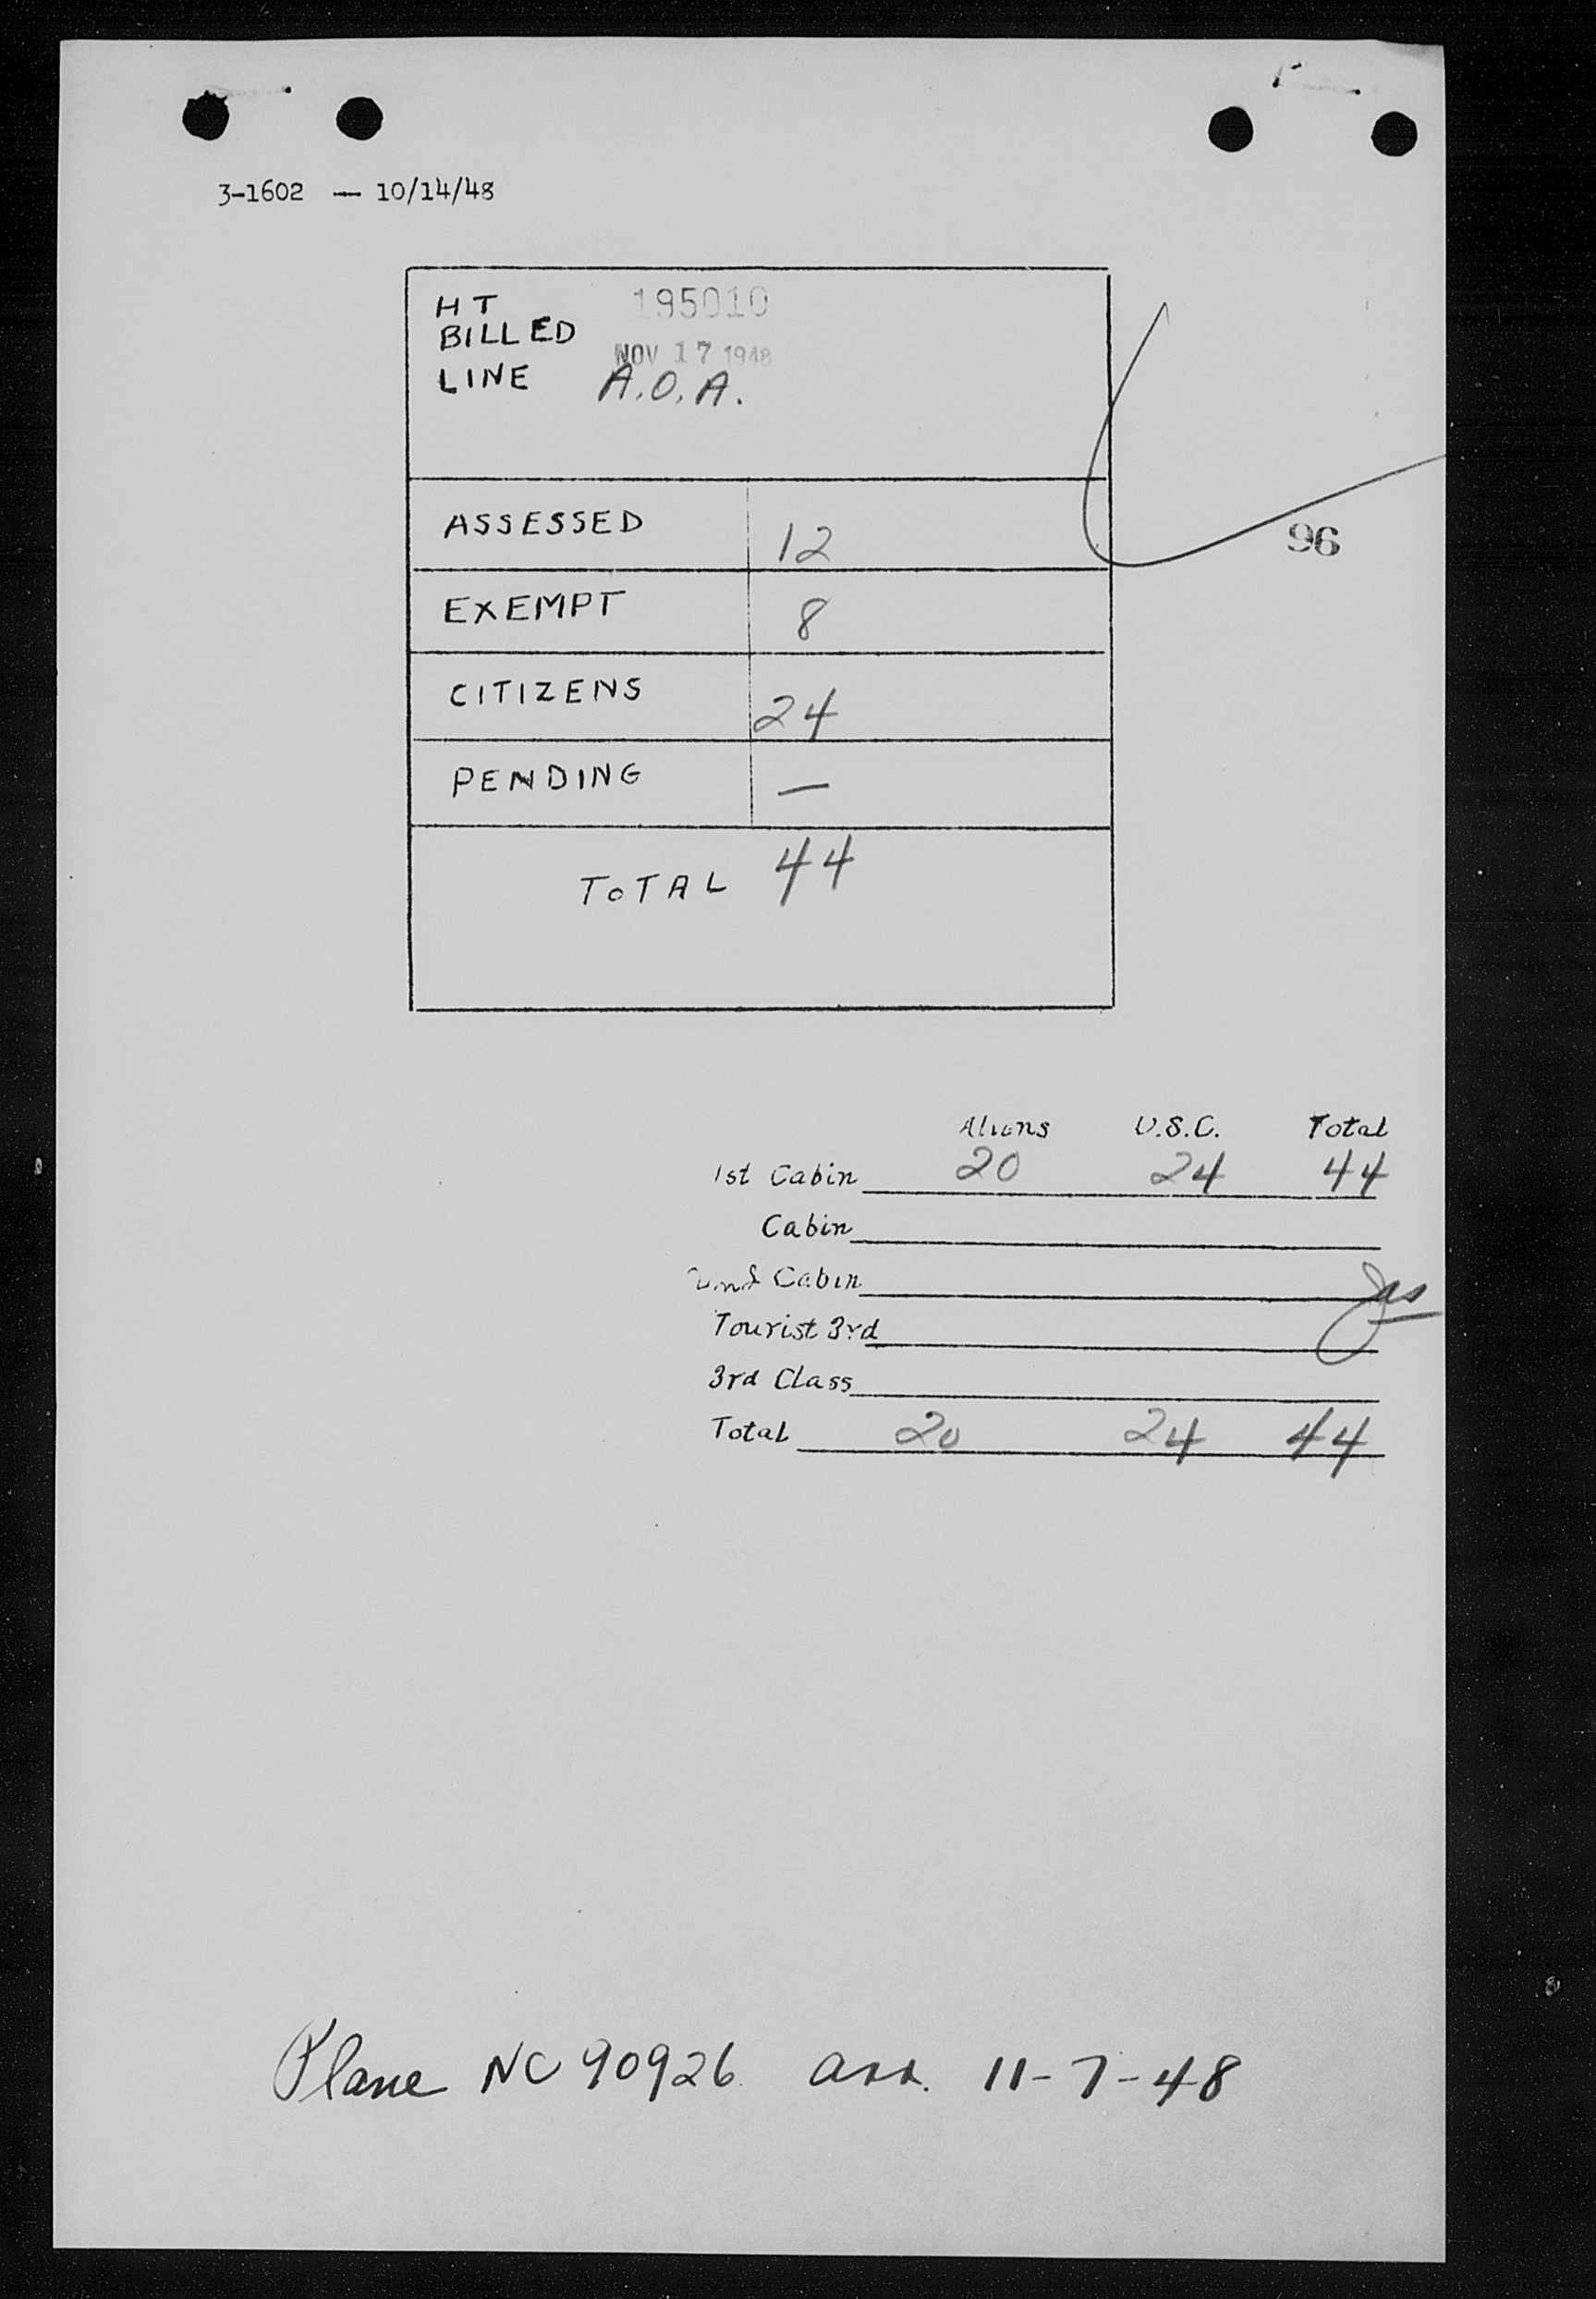 3-1602 — 10/14/48
HT 195010
BILLED NOV 17 1948
LINE A.O.A.
ASSESSED 12
96
EXEMPT 8
CITIZENS 24
PENDING —
TOTAL 44
Aliens U.S.C. Total
1st Cabin 20 24 44
Cabin
2nd Cabin
Tourist 3rd
3rd Class
Total 20 24 44
Plane NC 90926 arr. 11-7-48